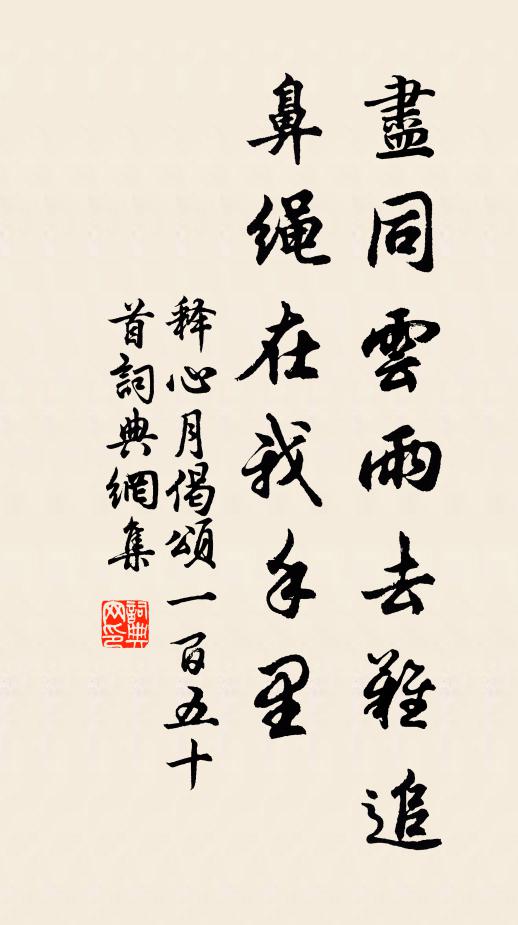 盡同雲雨去難追
鼻繩在我手里
释心月偈頌一百五十
首詞典網集
詞典
网印